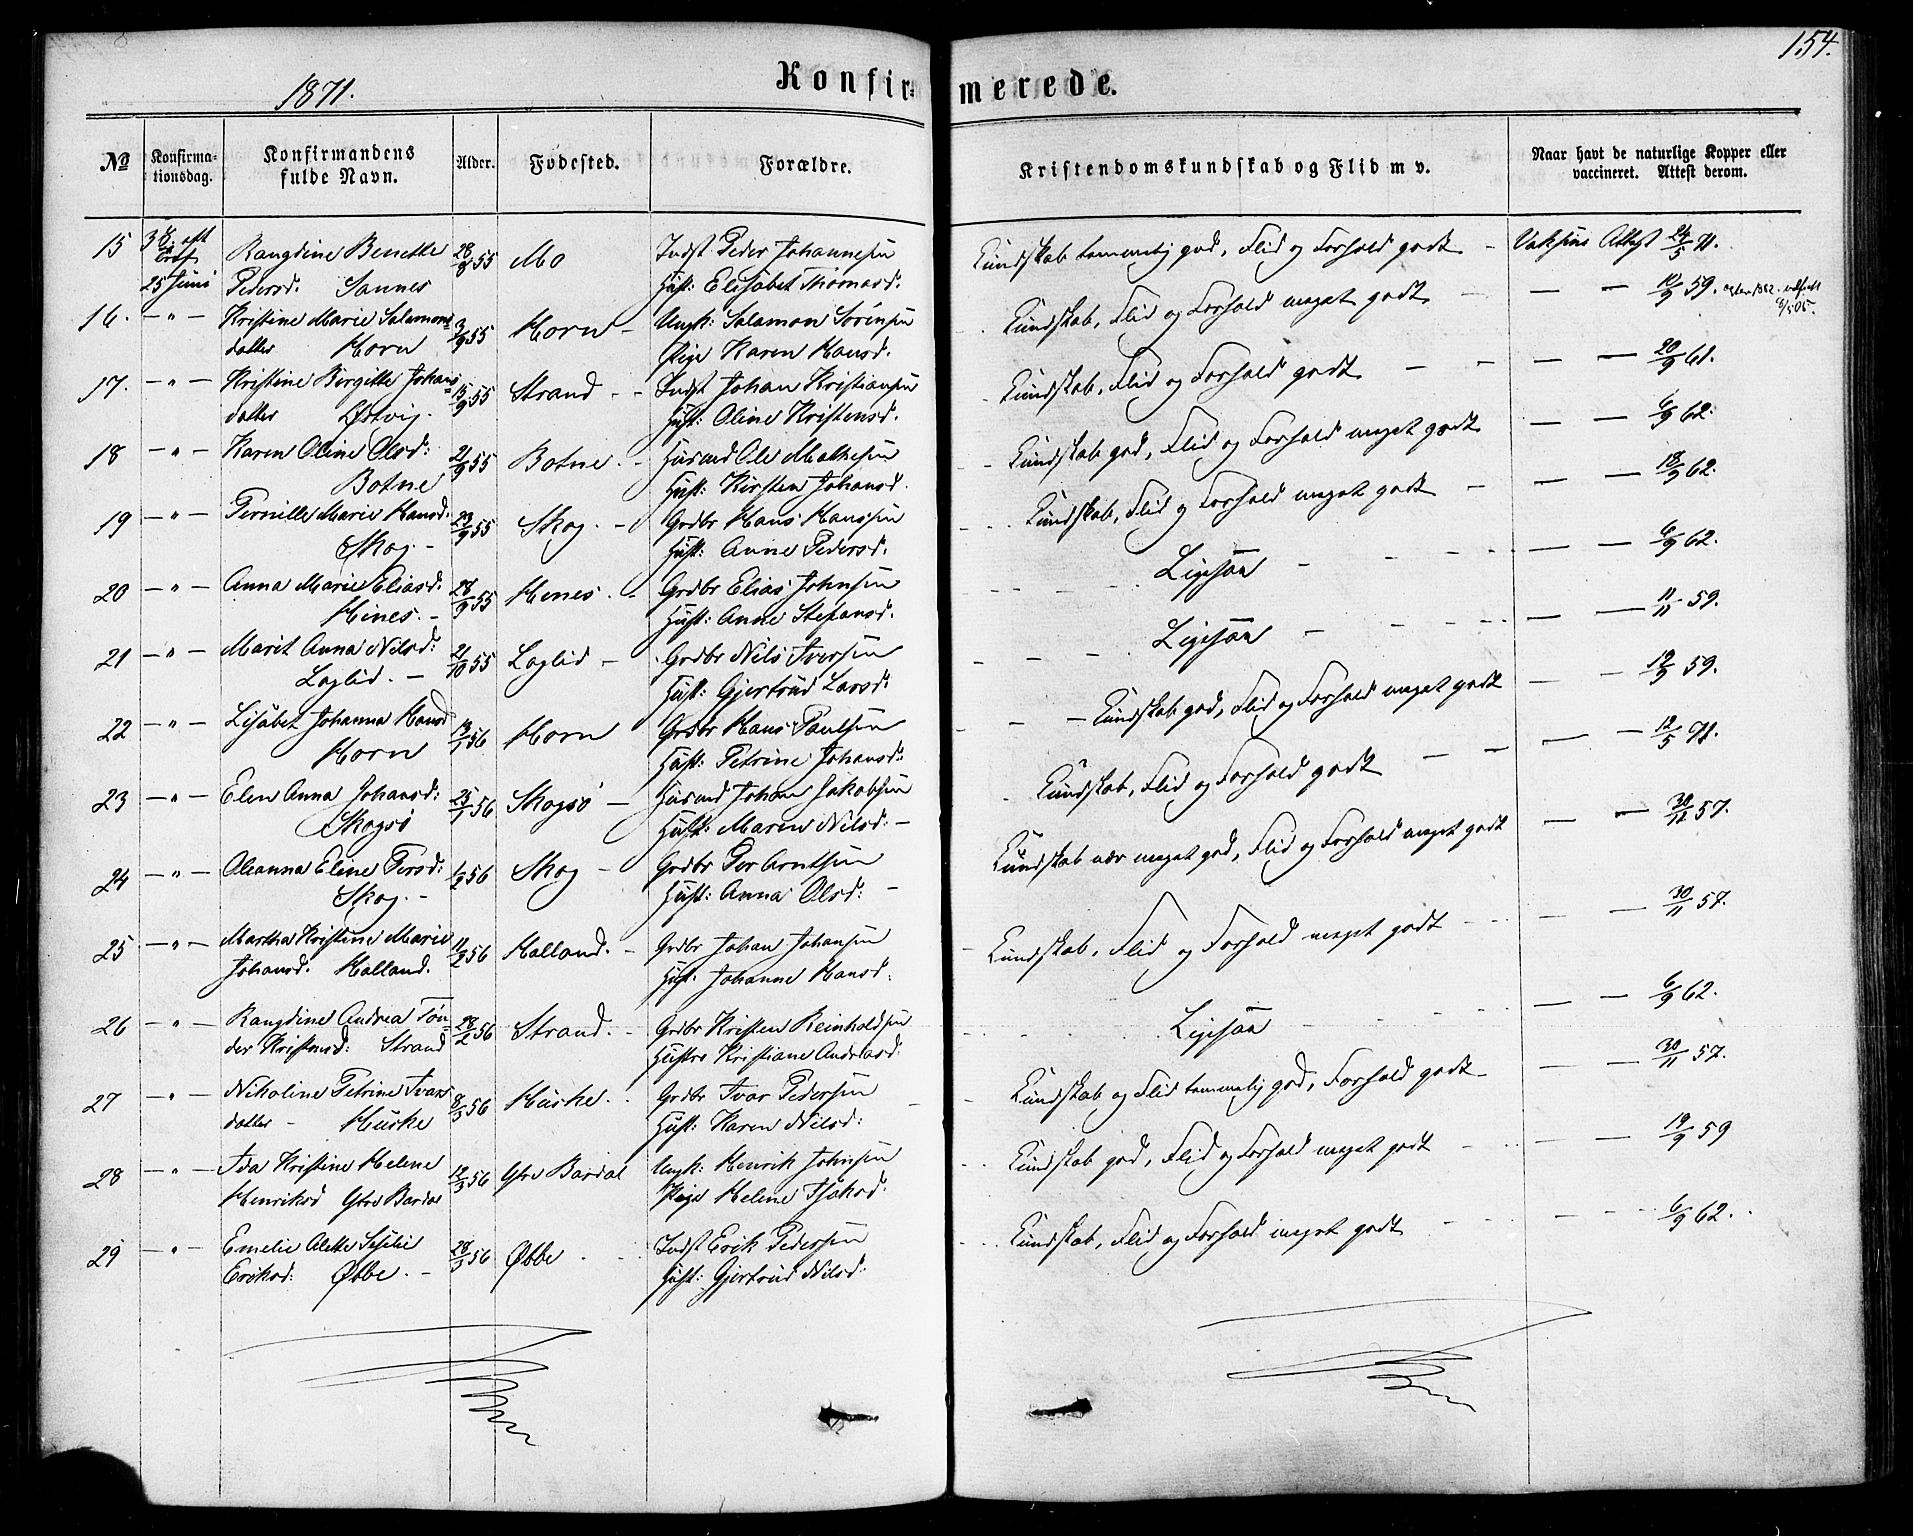 154.
1871.
Konfirmerede.
No Konfirmationsdag. Konfirmandens fulde Navn. Alder. Fødested. Forældre. Kristendomskundskab og Flid m v. Naar havt de naturlige Kopper eller vaccineret. Attest derom.
15 3 S. eft. Tref. Rangdine Benette 28/8 55 Mo Indst Peder Johannesen Kundskab temmelig god, Flid og Forhold godt - Vaksine Attest 24/5 71.
25 Juni Pedersd. Sannes Hust: Elisabet Thomasd.
16. - " - Kristine Marie Salamons= 3/9 55 Horn - Ungk: Salamon Sörensen Kundskab, Flid og Forhold meget godt - - - 12/9 59.
datter Horn Pige Karen Hansd.
17. - " - Kristine Birgitte Johans= 15/9 55 Strand - - Indst Johan Kristiansen Kundskab, Flid og Forhold godt - - - - 20/9 61.
datter Østvig. Hust: Oline Kristensd.
18 - " - Karen Oline Olsd: 21/9 55 Botne. - Husmd Ole Mathesen Kundskab god, Flid og Forhold meget godt - - 6/9 62.
Botne Hust: Kirsten Johansd.
19 - " - Pernille Marie Hansd: 23/9 55 Skog. - Grdbr Hans Hanssen Kundskab, Flid og Forhold meget godt - - - 18/9 62.
Skog - Hust: Anne Pedersd.
20 - " - Anna Marie Eliasd. 28/9 55 Hemnes. - Grdbr Elias Johnsen Ligesaa - - - 6/9 62.
Hust: Anne Stefansd.
21 - " - Marit Anna Nilsd: 21/10 55 Laglid - Grdbr Nils Iversen Ligesaa - - - 11/11 59.
Laglid. - Hust: Gjertrud Larsd:
22 - " - Lisabet Johanna Hansd 13/1 56 Horn Grdbr Hans Paulsen - - Kundskab god, Flid og Forhold meget godt - - 19/9 59.
Horn Hust: Petrine Johansd:
23 - " - Elen Anna Johansd: 25/1 56 Skogsø - Husmd Johan Jakobsen Kundskab, Flid og Forhold godt - - - - 12/5 71.
Skogsø Hust: Maren Nilsd: -
24 - " - Oleanna Eline Persd: 1/2 56 Skog - Grdbr Per Arntsen Kundskab nær meget god, Flid og Forhold meget godt - - 30/11 57.
Skog. - Hust: Anna Olsd: -
25 - " - Martha Kristine Marie 11/2 56 Halland. - Grdbr Johan Johansen - Kundskab, Flid og Forhold meget godt - - - 30/11 57.
Johansd. Halland. Hust. Johanne Hansd.
26 - " - Rangdine Andrea Tøn= 28/2 56 Strand. - Grdbr Kristen Reinholdsen Ligesaa - - - 6/9 62.
der Kristensd: Strand Hustro Kristiane Andreasd:
27 - " - Nikoline Petrine Ivars 8/3 56 Huske. - Grdbr Ivar Pedersen - Kundskab og Flid temmelig god, Forhold godt - - - 30/11 57.
datter - Huske Hust: Karen Nilsd:
28 - " - Ida Kristine Helene 12/3 56 Ytre Bardal Ungk: Henrik Johnsen Kundskab god, Flid og Forhold meget godt - - - 19/9 59
Henriksd Ytre Bardal Pige Helene Isaksd:
29 - " - Emelie Alette Sesilie 28/3 56 Øbbe - Indst Erik Pedersen Kundskab, Flid og Forhold meget godt - - - 6/9 62.
Eriksd: Øbbe. - Hust: Gjertrud Nilsd: